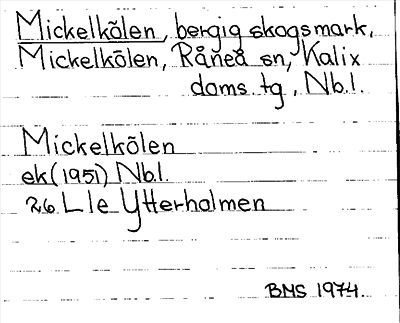 Mickelkölen, bergig skogsmark,
Mickelkölen, Råneå sn, Kalix
doms. tg, Nb.l.
Mickelkölen
ek(1951) Nb.l.
26 L le Ytterholmen
BMS 1974.